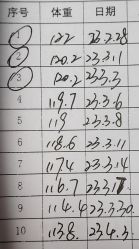 序号 体重 日期
1 122 23.2.28
2 120.2 23.3.1
3 120.2 23.3.3
4 119.7 23.3.6
5 119 23.3.8
6 118.6 23.3.11
7 117.4 23.3.14
8 116.7 23.3.17
9 114.4 23.3.30
10 113.8 23.4.3